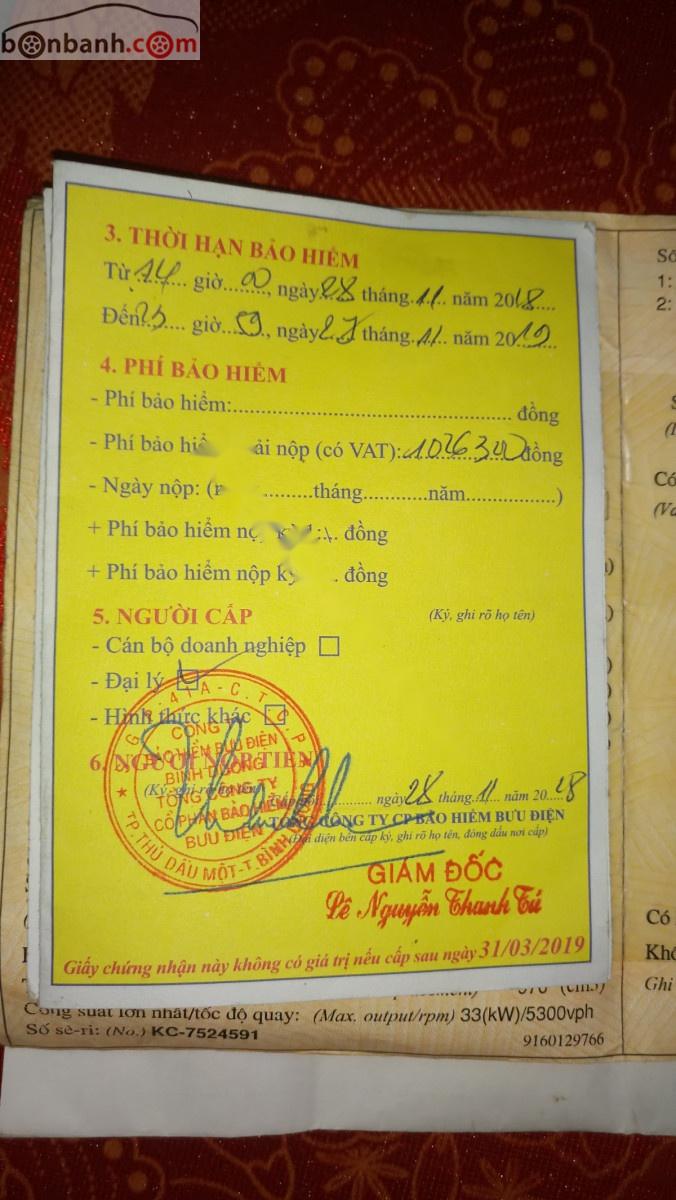 bonbanh.com
3. THỜI HẠN BẢO HIỂM
Từ 14 giờ 00, ngày 28 tháng 11 năm 2018
Đến 23 giờ 59, ngày 27 tháng 11 năm 2019
4. PHÍ BẢO HIỂM
- Phí bảo hiểm: đồng
- Phí bảo hiể ải nộp (có VAT): 1026300 đồng
- Ngày nộp: ( tháng năm )
+ Phí bảo hiểm đồng
+ Phí bảo hiểm nộp kỳ đồng
5. NGƯỜI CẤP (Ký, ghi rõ họ tên)
- Cán bộ doanh nghiệp
- Đại lý
- Hình thức khác
6. NGƯỜI NỘP TIỀN
(Ký, ghi rõ họ tên) ngày 28 tháng 11 năm 2018
TỔNG CÔNG TY CP BẢO HIỂM BƯU ĐIỆN
(Đại diện bên cấp ký, ghi rõ họ tên, đóng dấu nơi cấp)
CÔNG TY
BẢO HIỂM BƯU ĐIỆN
BÌNH DƯƠNG
TỔNG CÔNG TY
CỔ PHẦN BẢO HIỂM
BƯU ĐIỆN
TP.THỦ DẦU MỘT-T.BÌNH
GIÁM ĐỐC
Lê Nguyễn Thanh Tú
Giấy chứng nhận này không có giá trị nếu cấp sau ngày 31/03/2019
(cm3)
Công suất lớn nhất/tốc độ quay: (Max. output/rpm) 33(kW)/5300vph
Số sê-ri: (No.) KC-7524591
9160129766
Số
1:
2:
Có
Có
Khô
Ghi